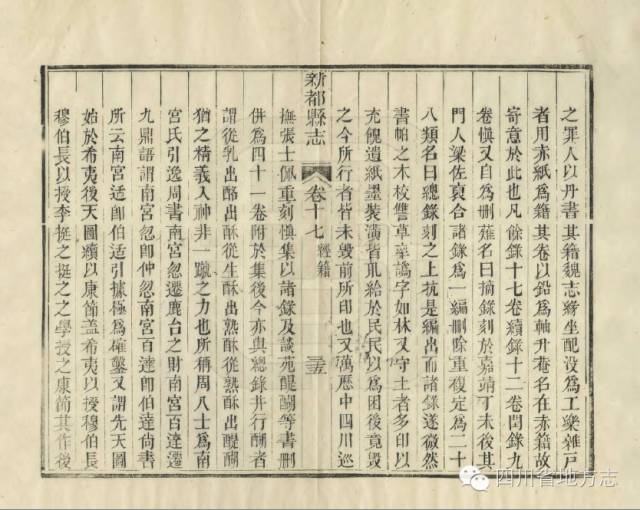 之罪人以丹書其籍魏志緣坐配沒為工樂雜戶
者用赤紙為籍其卷以鉛為軸升菴名在赤籍故
寄意於此也凡餘錄十七卷續錄十二卷閏錄九
卷慎又自為刪薙名曰摘錄刻於嘉靖丁未後其
門人梁佐裒合諸錄為一編刪除重複定為二十
八類名曰總錄刻之上抗是編出而諸錄遂微然
書帕之本校讐草率譌字如林又守土者多印以
充餽遺紙墨裝潢皆取給於民民以為困後竟毀
之今所行者皆未毀前所印也又萬歷中四川巡
新都縣志
卷十七
經籍
三五
撫張士佩重刻慎集以諸錄及談苑醍醐等書刪
併為四十一卷附於集後今亦與總錄幷行酬者
謂從乳出酪出酥從生酥出熟酥從熟酥出醍醐
猶之精義入神非一蹴之力也所稱周八士為南
宮氏引逸周書南宮忽遷鹿台之財南宮百達遷
九鼎語謂南宮忽即仲忽南宮百達即伯達尙書
所云南宮适即伯适引據極為確鑿又謂先天圖
始於希夷後天圖續以康節盖希夷以授穆伯長
穆伯長以授李挺之挺之之學授之康節其作後
四川省地方志